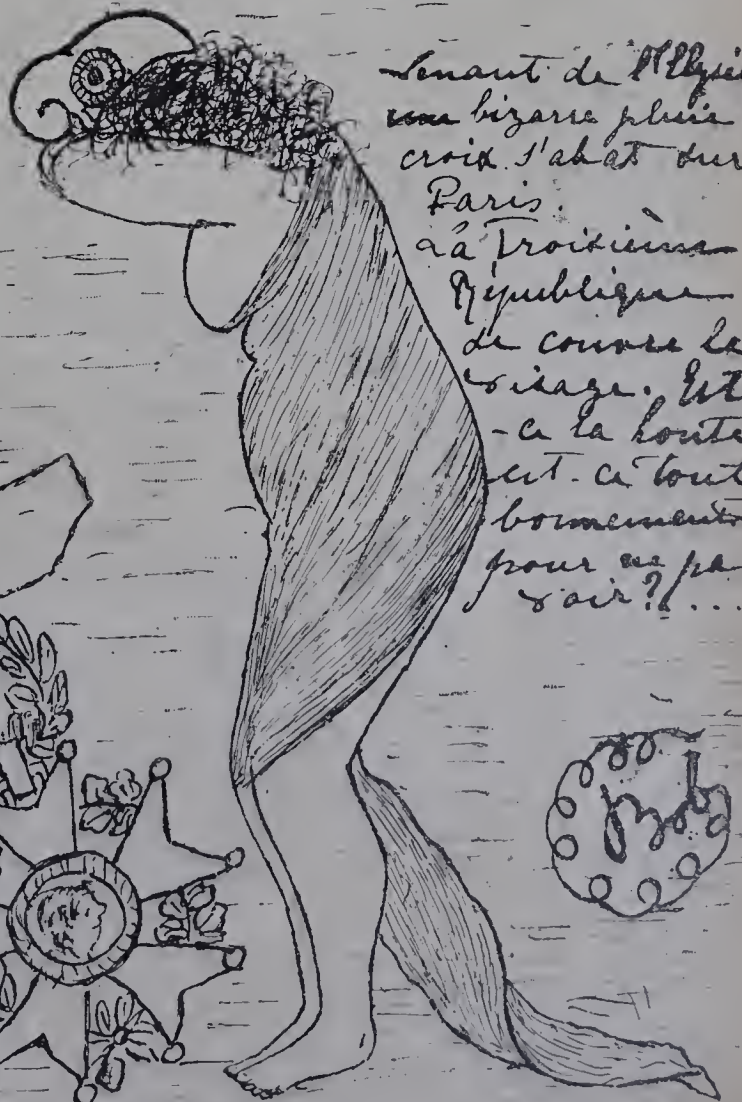 Venant de l'Elysée
une bizarre pluie
croix s'abat sur
Paris.
La Troisième
République
se couvre le
visage. Est
-ce la honte
est-ce tout
bonnement
pour ne pas
voir?!...
bob